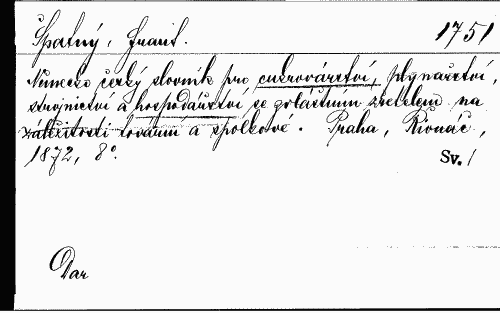 Špatný, Frant. 1751
Německo český slovník pro cukrovárství, plynařství,
strojnictví a hospodářství se zvláštním zřetelem na
záležitosti tovární a spolkové. Praha, Rivnáč,
1872, 8°. Sv. 1
Dar